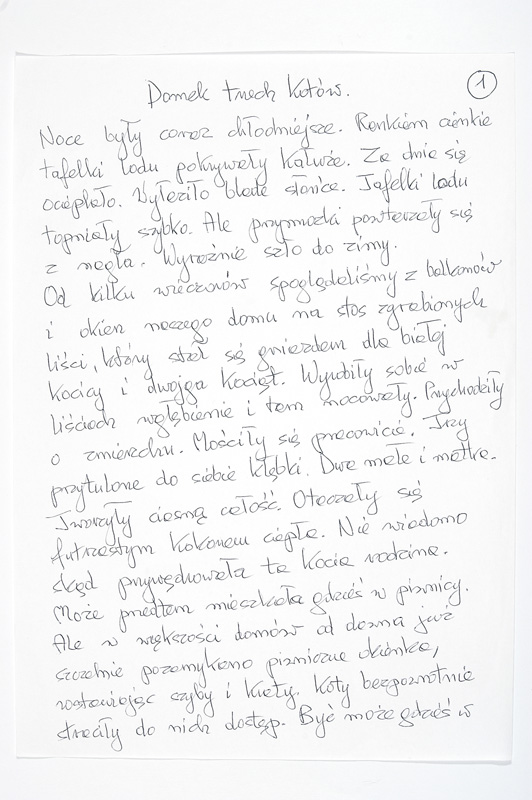 Domek trzech Kotów.
1
Noce były coraz chłodniejsze. Rankiem cienkie
tafelki lodu pokrywały kałuże. Za dnia się
ociepłało. Wyłaziło blade słońce. Tafelki lodu
topniały szybko. Ale przymrozki powtarzały się
z nagła. Wyraźnie szło do zimy.
Od kilku wieczorów spoglądaliśmy z balkonów
i okien naszego domu na stos zgrabionych
liści, który stał się gniazdem dla białej
kocicy i dwojga kociąt. Wyrobiły sobie w
liściach wgłębienie i tam nocowały. Przychodziły
o zmierzchu. Mościły się pracowicie. Trzy
przytulone do siebie kłębki. Dwa małe i matka.
Tworzyły ciasną całość. Otaczały się
futrzastym kokonem ciepła. Nie wiadomo
skąd przywędrowała ta kocia rodzina.
Może przedtem mieszkała gdzieś w piwnicy.
Ale w większości domów od dawna już
szczelnie pozamykano piwniczne okienka,
wstawiając szyby i kraty. Koty bezpowrotnie
straciły do nich dostęp. Być może gdzieś w